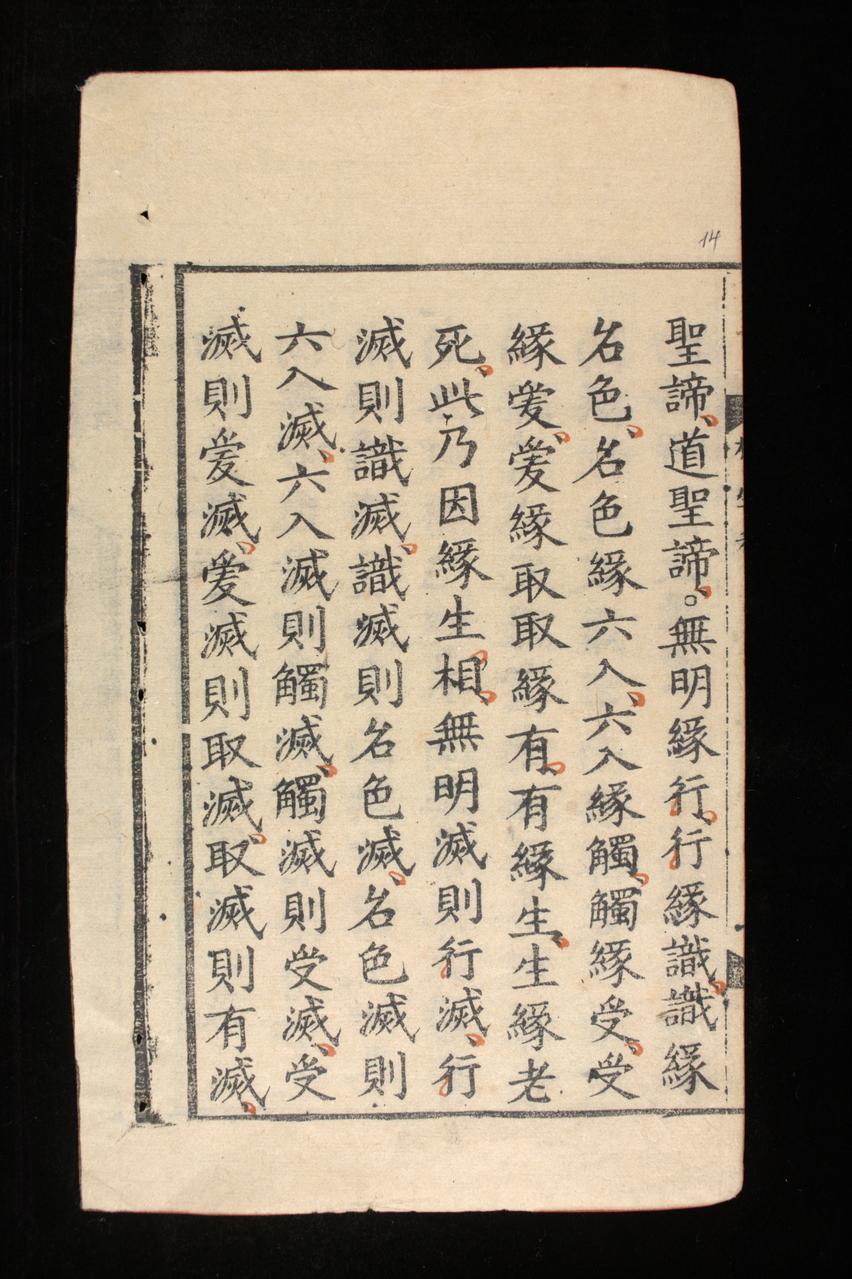 14
聖諦、道聖諦。無明緣行、行緣識、識緣
名色、名色緣六入、六入緣觸、觸緣受、受
緣愛、愛緣取取緣有、有緣生、生緣老
死、此乃因緣生相、無明滅則行滅、行
滅則識滅、識滅則名色滅、名色滅則
六入滅、六入滅則觸滅、觸滅則受滅、受
滅則愛滅、愛滅則取滅、取滅則有滅、